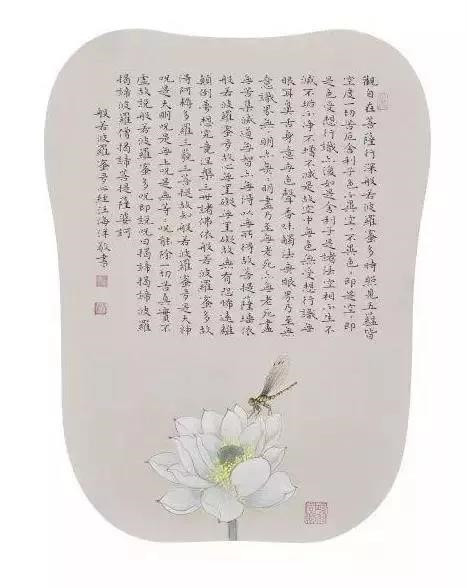 觀自在菩薩行深般若波羅蜜多時照見五蘊皆
空度一切苦厄舍利子色不異空、不異色、即是空、即
是色受想行識亦復如是舍利子是諸法空相不生不
滅不垢不淨不增不減是故空中無色無受想行識無
眼耳鼻舌身意無色聲香味觸法無眼界乃至無
意識界無無明亦無無明盡乃至無老死亦無老死盡
無苦集滅道無智亦無得以無所得故菩提薩埵依
般若波羅蜜多故心無罣礙無罣礙故無有恐怖遠離
顛倒夢想究竟涅槃三世諸佛依般若波羅蜜多故
得阿耨多羅三藐三菩提故知般若波羅蜜多是大神
咒是大明咒是無上咒是無等、咒能除一切苦真實不
虛故說般若波羅蜜多咒即說咒曰揭諦揭諦波羅
揭諦波羅僧揭諦菩提薩婆訶
般若波羅蜜多心經江海洋敬書